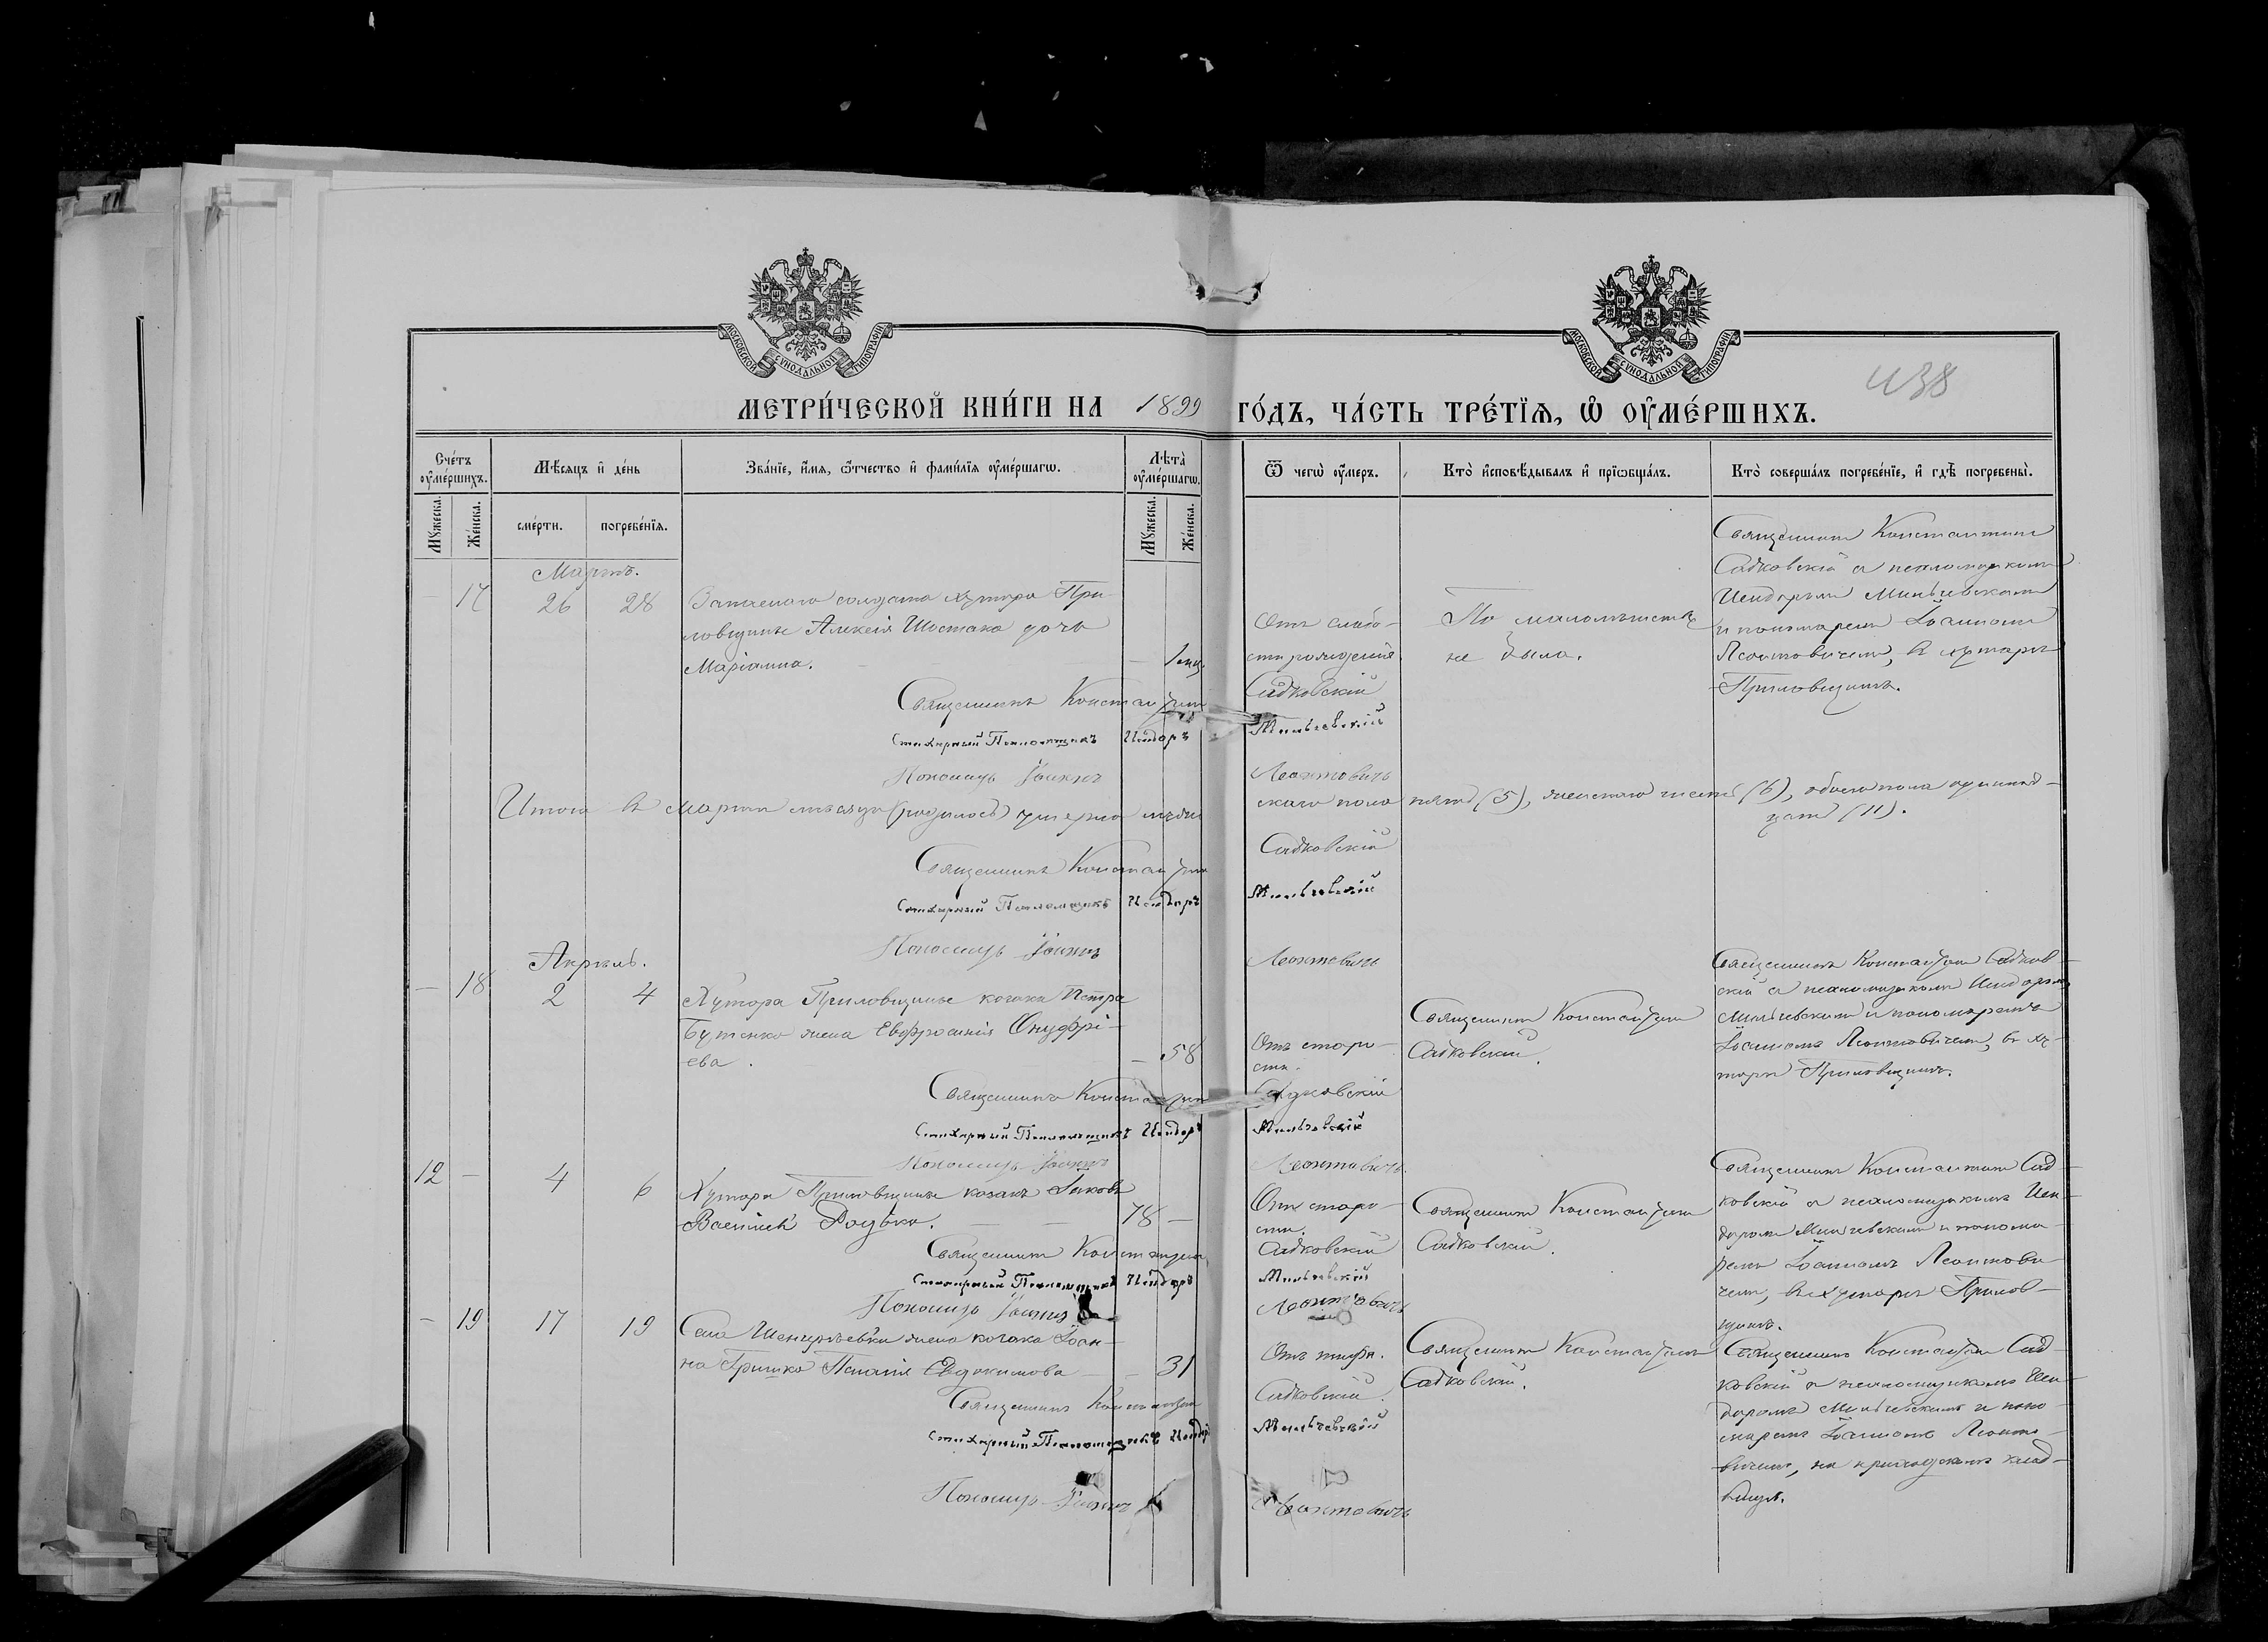 МОСКОВСКОЙ СѴНОДАЛЬНОЙ ТИПОГРАФІИ
МОСКОВСКОЙ СѴНОДАЛЬНОЙ ТИПОГРАФІИ
438
МЕТРИ́ЧЕСКОЙ КНИ́ГИ НА 1899 ГО́ДЪ, ЧА́СТЬ ТРЕ́ТЇѦ, Ѡ҆ ОУ҆МЕ́РШИХЪ.
Сче́тъ оу҆ме́ршихъ.
Мѣ́сяцъ и҆ де́нь
Зва́нїе, и҆́мя, ѻ҆́тчество и҆ фами́лїя оу҆ме́ршагѡ.
Лѣта̀ оу҆ме́ршагѡ.
Ѿ чегѡ̀ оу҆́меръ.
Кто̀ и҆сповѣ́дывалъ и҆ прїѡбща́лъ.
Кто̀ соверша́лъ погребе́нїе, и҆ гдѣ̀ погребены̀.
Мꙋ́жеска.
Же́нска.
сме́рти.
погребе́нїя.
Мꙋ́жеска.
Же́нска.
Мартъ.
— 17 26 28
Запаснаго солдата хутора При-
ловщины Алексія Шостака дочь
Маріанна. — 1 мц.
Отъ слабо-
сти рожденія.
По малолѣтству
не была.
Священникъ Константинъ
Садковскій съ псаломщикомъ
Исидоромъ Мильчевскимъ
и пономаремъ Іоанномъ
Леонтовичемъ, въ хуторѣ
Приловщинѣ.
Священникъ Константинъ Садковскій
Стихарный Псаломщикъ Исидоръ Мильчевскій
Пономарь Іоаннъ Леонтовичъ
Итого въ мартѣ мѣсяцѣ (родилось) умерло мужескаго пола пять (5), женскаго шесть (6), обоего пола одиннад-
цать (11).
Священникъ Константинъ Садковскій
Стихарный Псаломщикъ Исидоръ Мильчевскій
Пономарь Іоаннъ Леонтовичъ
Апрѣль.
— 18 2 4
Хутора Приловщины козака Петра
Бутенко жена Евфросинія Онуфрі-
ева. — 58
Отъ старо-
сти.
Священникъ Константинъ
Садковскій.
Священникъ Константинъ Садков-
скій съ псаломщикомъ Исидоромъ
Мильчевскимъ и пономаремъ
Іоанномъ Леонтовичемъ, въ ху-
торѣ Приловщинѣ.
Священникъ Константинъ Садковскій
Стихарный Псаломщикъ Исидоръ Мильчевскій
Пономарь Іоаннъ Леонтовичъ
12 — 4 6
Хутора Приловщины козакъ Іаковъ
Василіевъ. 78 —
Отъ старо-
сти.
Священникъ Константинъ
Садковскій.
Священникъ Константинъ Сад-
ковскій съ псаломщикомъ Иси-
доромъ Мильчевскимъ и понома-
ремъ Іоанномъ Леонтови-
чемъ, въ хуторѣ Прилов-
щинѣ.
Священникъ Константинъ Садковскій
Стихарный Псаломщикъ Исидоръ Мильчевскій
Пономарь Іоаннъ Леонтовичъ
— 19 17 19
Села жена козака Іоан-
на Гришко Пелагія Евдокимова — 31
Отъ тифа.
Священникъ Константинъ
Садковскій.
Священникъ Константинъ Сад-
ковскій съ псаломщикомъ Иси-
доромъ Мильчевскимъ и поно-
маремъ Іоанномъ Леонто-
вичемъ, на приходскомъ клад-
бищѣ.
Священникъ Константинъ Садковскій
Стихарный Псаломщикъ Исидоръ Мильчевскій
Пономарь Іоаннъ Леонтовичъ